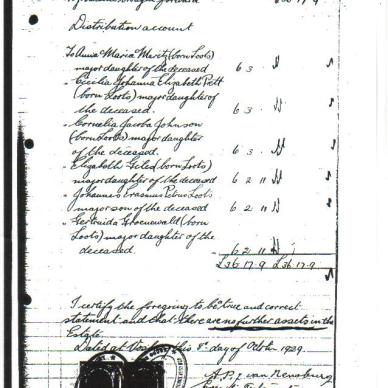 Distribution account
To Anna Maria Maritz (born Loots)
major daughter of the deceased 6 3 .
" Cecilia Johanna Elizabeth Pett
(born Loots) major daughter of
the deceased. 6 3 .
" Cornelia Jacoba Johnson
(born Loots) major daughter
of the deceased. 6 3 .
" Elizabeth (born Loots)
major daughter of the deceased 6 2 11
" Johannes Erasmus Petrus Loots
major son of the deceased 6 2 11
" Gertruida Groenewald (born
Loots) major daughter of the
deceased. 6 2 11
£36 17-9 £36 17-9
I certify the foregoing to be true and correct
statement and that there are no further assets in the
Estate.
Dated at this day of October 1929.
A.P.J. van Rensburg